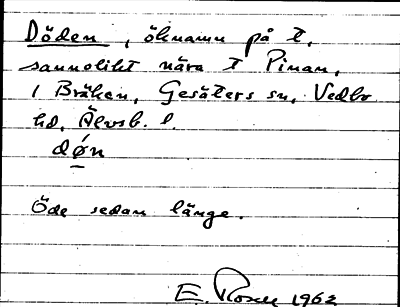 Döden, öknamn på t.
sannolikt nära t Pinan,
i Bräken, Gesäters sn, Vedbo
hd, Älvsb. l.
døn
Öde sedan länge.
E. Rosell 1962